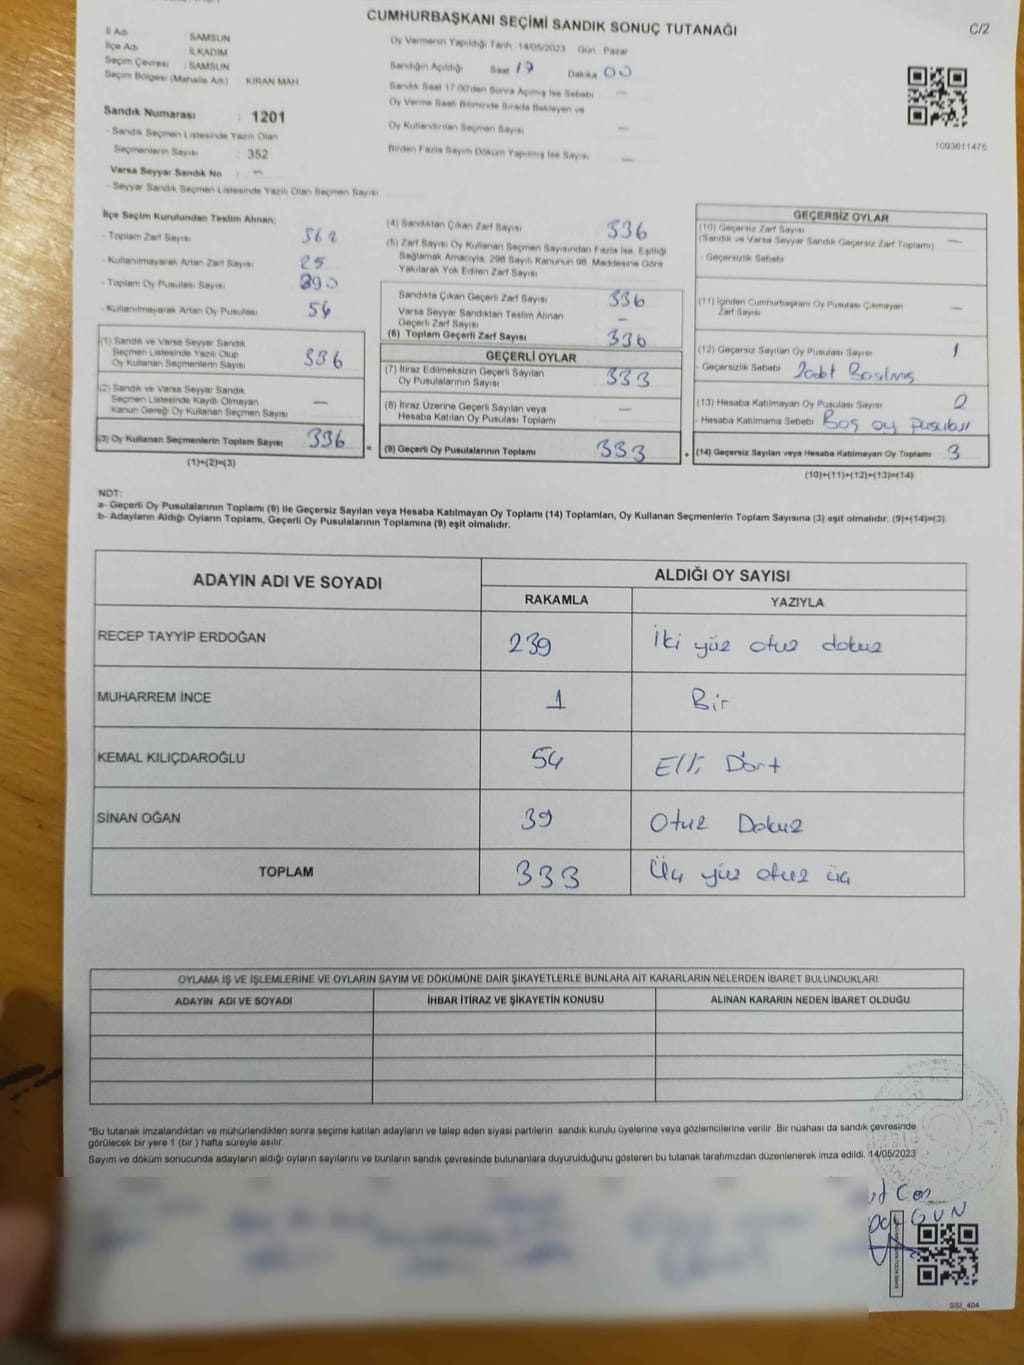 CUMHURBAŞKANI SEÇİMİ SANDIK SONUÇ TUTANAĞI
C/2
İl Adı SAMSUN
İlçe Adı İLKADIM
Seçim Çevresi : SAMSUN
Seçim Bölgesi (Mahalle Adı) : KIRAN MAH.
Sandık Numarası : 1201
- Sandık Seçmen Listesinde Yazılı Olan
Seçmenlerin Sayısı : 352
Varsa Seyyar Sandık No : -
- Seyyar Sandık Seçmen Listesinde Yazılı Olan Seçmen Sayısı
Oy Vermenin Yapıldığı Tarih 14/05/2023 Gün Pazar
Sandığın Açıldığı Saat 17 Dakika 00
Sandık Saat 17:00'den Sonra Açılmış İse Sebebi -
Oy Verme Saati Bitiminde Sırada Bekleyen ve
Oy Kullandırılan Seçmen Sayısı -
Birden Fazla Sayım Döküm Yapılmış İse Sayısı -
1093611475
İlçe Seçim Kurulundan Teslim Alınan;
- Toplam Zarf Sayısı 362
- Kullanılmayarak Artan Zarf Sayısı 25
- Toplam Oy Pusulası Sayısı 390
- Kullanılmayarak Artan Oy Pusulası 54
(1) Sandık ve Varsa Seyyar Sandık
Seçmen Listesinde Yazılı Olup
Oy Kullanan Seçmenlerin Sayısı 336
(2) Sandık ve Varsa Seyyar Sandık
Seçmen Listesinde Kayıtlı Olmayan
Kanun Gereği Oy Kullanan Seçmen Sayısı -
(3) Oy Kullanan Seçmenlerin Toplam Sayısı 336 =
(1)+(2)=(3)
(4) Sandıktan Çıkan Zarf Sayısı 336
(5) Zarf Sayısı Oy Kullanan Seçmen Sayısından Fazla İse, Eşitliği
Sağlamak Amacıyla, 298 Sayılı Kanunun 98. Maddesine Göre
Yakılarak Yok Edilen Zarf Sayısı
Sandıkta Çıkan Geçerli Zarf Sayısı 336
Varsa Seyyar Sandıktan Teslim Alınan
Geçerli Zarf Sayısı -
(6) Toplam Geçerli Zarf Sayısı 336
GEÇERLİ OYLAR
(7) İtiraz Edilmeksizin Geçerli Sayılan
Oy Pusulalarının Sayısı 333
(8) İtiraz Üzerine Geçerli Sayılan veya
Hesaba Katılan Oy Pusulası Toplamı -
(9) Geçerli Oy Pusulalarının Toplamı 333 +
GEÇERSİZ OYLAR
(10) Geçersiz Zarf Sayısı
(Sandık ve Varsa Seyyar Sandık Geçersiz Zarf Toplamı) -
- Geçersizlik Sebebi
(11) İçinden Cumhurbaşkanı Oy Pusulası Çıkmayan
Zarf Sayısı -
(12) Geçersiz Sayılan Oy Pusulası Sayısı 1
- Geçersizlik Sebebi 2 adet Basılmış
(13) Hesaba Katılmayan Oy Pusulası Sayısı 2
- Hesaba Katılmama Sebebi Boş oy pusulası
(14) Geçersiz Sayılan veya Hesaba Katılmayan Oy Toplamı 3
(10)+(11)+(12)+(13)=(14)
NOT:
a- Geçerli Oy Pusulalarının Toplamı (9) ile Geçersiz Sayılan veya Hesaba Katılmayan Oy Toplamı (14) Toplamları, Oy Kullanan Seçmenlerin Toplam Sayısına (3) eşit olmalıdır. (9)+(14)=(3)
b- Adayların Aldığı Oyların Toplamı, Geçerli Oy Pusulalarının Toplamına (9) eşit olmalıdır.
ADAYIN ADI VE SOYADI ALDIĞI OY SAYISI
RAKAMLA YAZIYLA
RECEP TAYYİP ERDOĞAN 239 İki yüz otuz dokuz
MUHARREM İNCE 1 Bir
KEMAL KILIÇDAROĞLU 54 Elli Dört
SİNAN OĞAN 39 Otuz Dokuz
TOPLAM 333 Üç yüz otuz üç
OYLAMA İŞ VE İŞLEMLERİNE VE OYLARIN SAYIM VE DÖKÜMÜNE DAİR ŞİKAYETLERLE BUNLARA AİT KARARLARIN NELERDEN İBARET BULUNDUKLARI
ADAYIN ADI VE SOYADI İHBAR İTİRAZ VE ŞİKAYETİN KONUSU ALINAN KARARIN NEDEN İBARET OLDUĞU
*Bu tutanak imzalandıktan ve mühürlendikten sonra seçime katılan adayların ve talep eden siyasi partilerin sandık kurulu üyelerine veya gözlemcilerine verilir. Bir nüshası da sandık çevresinde
görülecek bir yere 1 (bir) hafta süreyle asılır.
Sayım ve döküm sonucunda adayların aldığı oyların sayılarını ve bunların sandık çevresinde bulunanlara duyurulduğunu gösteren bu tutanak tarafımızdan düzenlenerek imza edildi. 14/05/2023
SSI_404